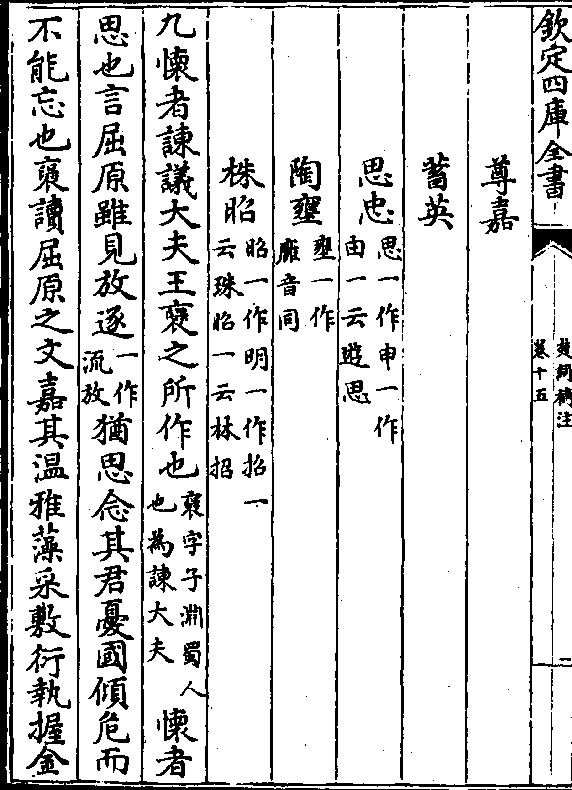 欽定四庫全書
楚詞補注
卷十五
二
尊嘉
蓄英
思忠思一作申一作由一云遊思
陶壅壅一作廱音同
株昭昭一作明一作招一云珠昭一云林招
九懷者諫議大夫王襃之所作也襃字子淵蜀人也為諫大夫懷者
思也言屈原雖見放逐一作流放猶思念其君憂國傾危而
不能忘也襃讀屈原之文嘉其温雅藻采敷衍執握金